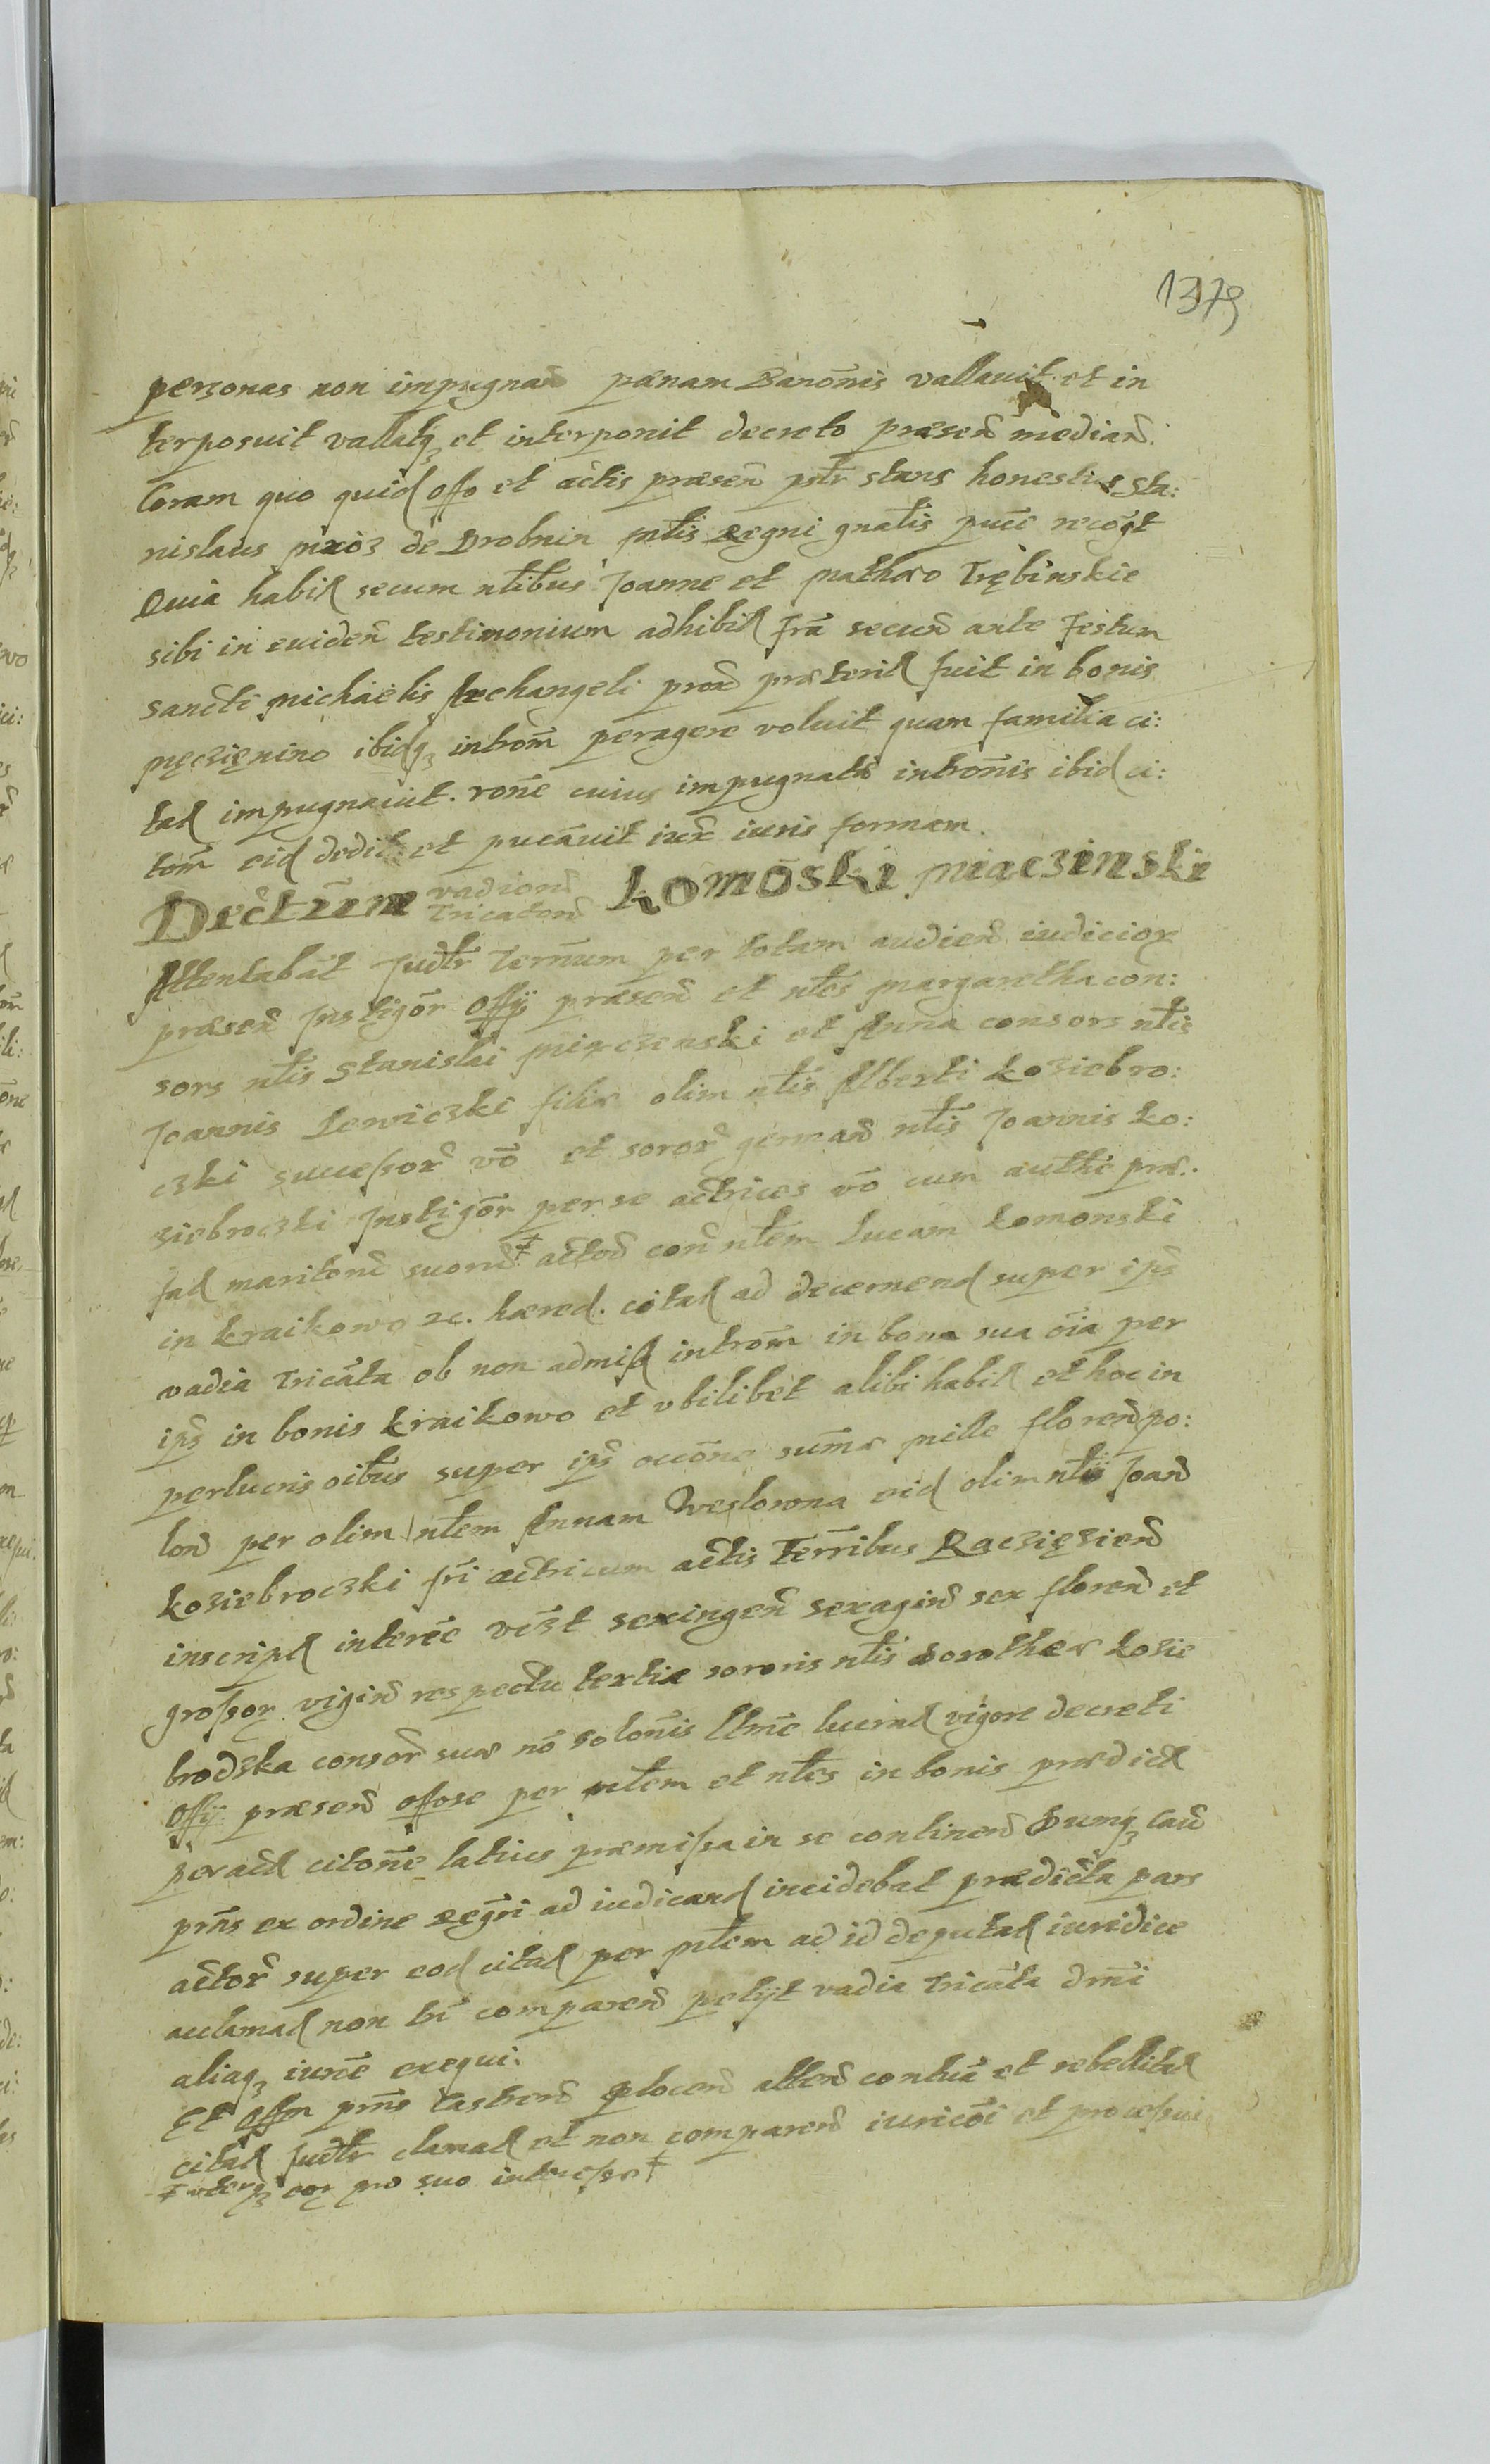 1379
personas non impugnand pœnam Banonis vallavit et in
terposuit vallatq et interponit decreto præsen median.
Coram quo quid offo et actis præsen pstr stans honestus Sta:
nislaus mroz de Drobnin mtis Regni gnatis puce recogt
Quia habit secum ntibus Joanne et Mathæo Trębinskie
sibi in eviden testimonium adhibit fra secun ante Festum
Sancti Michaelis Archangeli prox præterit fuit in bonis
Męczięnino ibidq introm peragere voluit quam familia ci:
tat impugnavit. rone cuius impugnatæ intronis ibid ci:
tom eid dedit et pucavit iux iuris formam.
Dectum vadiorum Tricatorum Komoski Miaczinski
Attentabat Judtr Ternum per totam audien iudicior
præsen Instigor Offij præsen et ntes Margaretha con:
sors ntis Stanislai Miączenski et Anna consors ntis
Joannis Lewiczki filiæ olim ntis Alberti Koziebro:
czki successor vo et soror german ntis Joannis Ko:
ziebroczki Instigor per se actrices vo cum authe præ:
fat maritorum suorum actor con ntem Lucam Komonski
in Kraikowo &c. hæred. citat ad decernend super ips
vadia Tricata ob non admiss introm in bona sua oia per
ips in bonis Kraikowo et ubilibet alibi habit et hoc in
perlucris oibus super ips occone summæ Mille floren po:
lon per olim ntem Annam Weslowna eid olim ntis Joan
Koziebroczki fri actricum actis Terribus Raczięzien
inscript interee vizt sexingen sexagin sex floren et
grossor vigin respectu tertiæ sororis ntis Dorotheæ Kozie
brodzka consor suæ no solonis llme lucrat vigore decreti
Offij præsen offose per ntem et ntes in bonis prædict
peract citone latius præmissa in se continen Dumq Cau
prns ex ordine regri ad iudicand incidebat prædicta pars
actor super eod citat per mtem ad id deputat iuridice
acclamat non tn comparen petijt vadia Tricata drni
aliaq iurne exequi.
Et Offm prns Castren Plocen atten contua et rebellitat
citat Judtr clamat et non comparen iuricoi et processui
‡ uterq eor pro suo interesse ‡